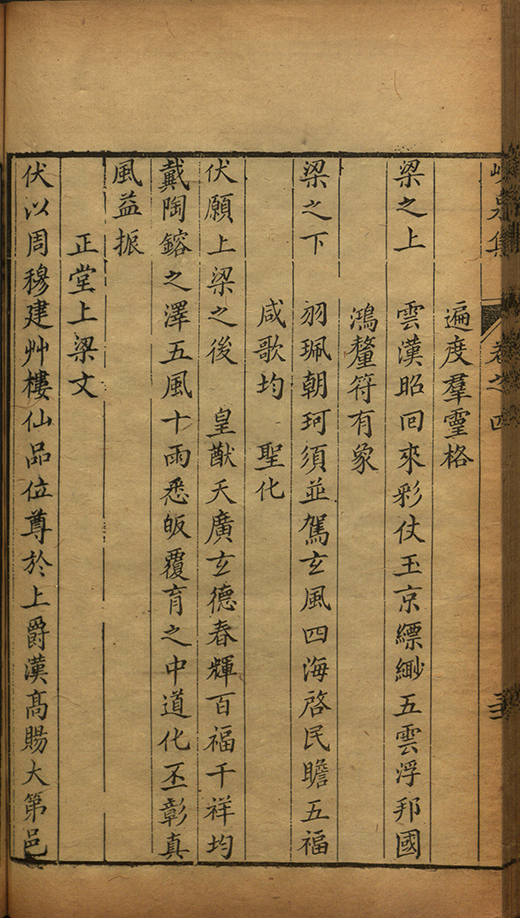 峴泉集 卷之四
遍度羣靈格
梁之上 雲漢昭回來彩仗玉京縹緲五雲浮邦國
鴻釐符有象
梁之下 羽珮朝珂須並駕玄風四海啓民瞻五福
咸歌均 聖化
伏願上梁之後 皇猷天廣玄德春輝百福千祥均
戴陶鎔之澤五風十雨悉皈覆育之中道化丕彰真
風益振
正堂上梁文
伏以周穆建艸樓仙品位尊於上爵漢高賜大第邑